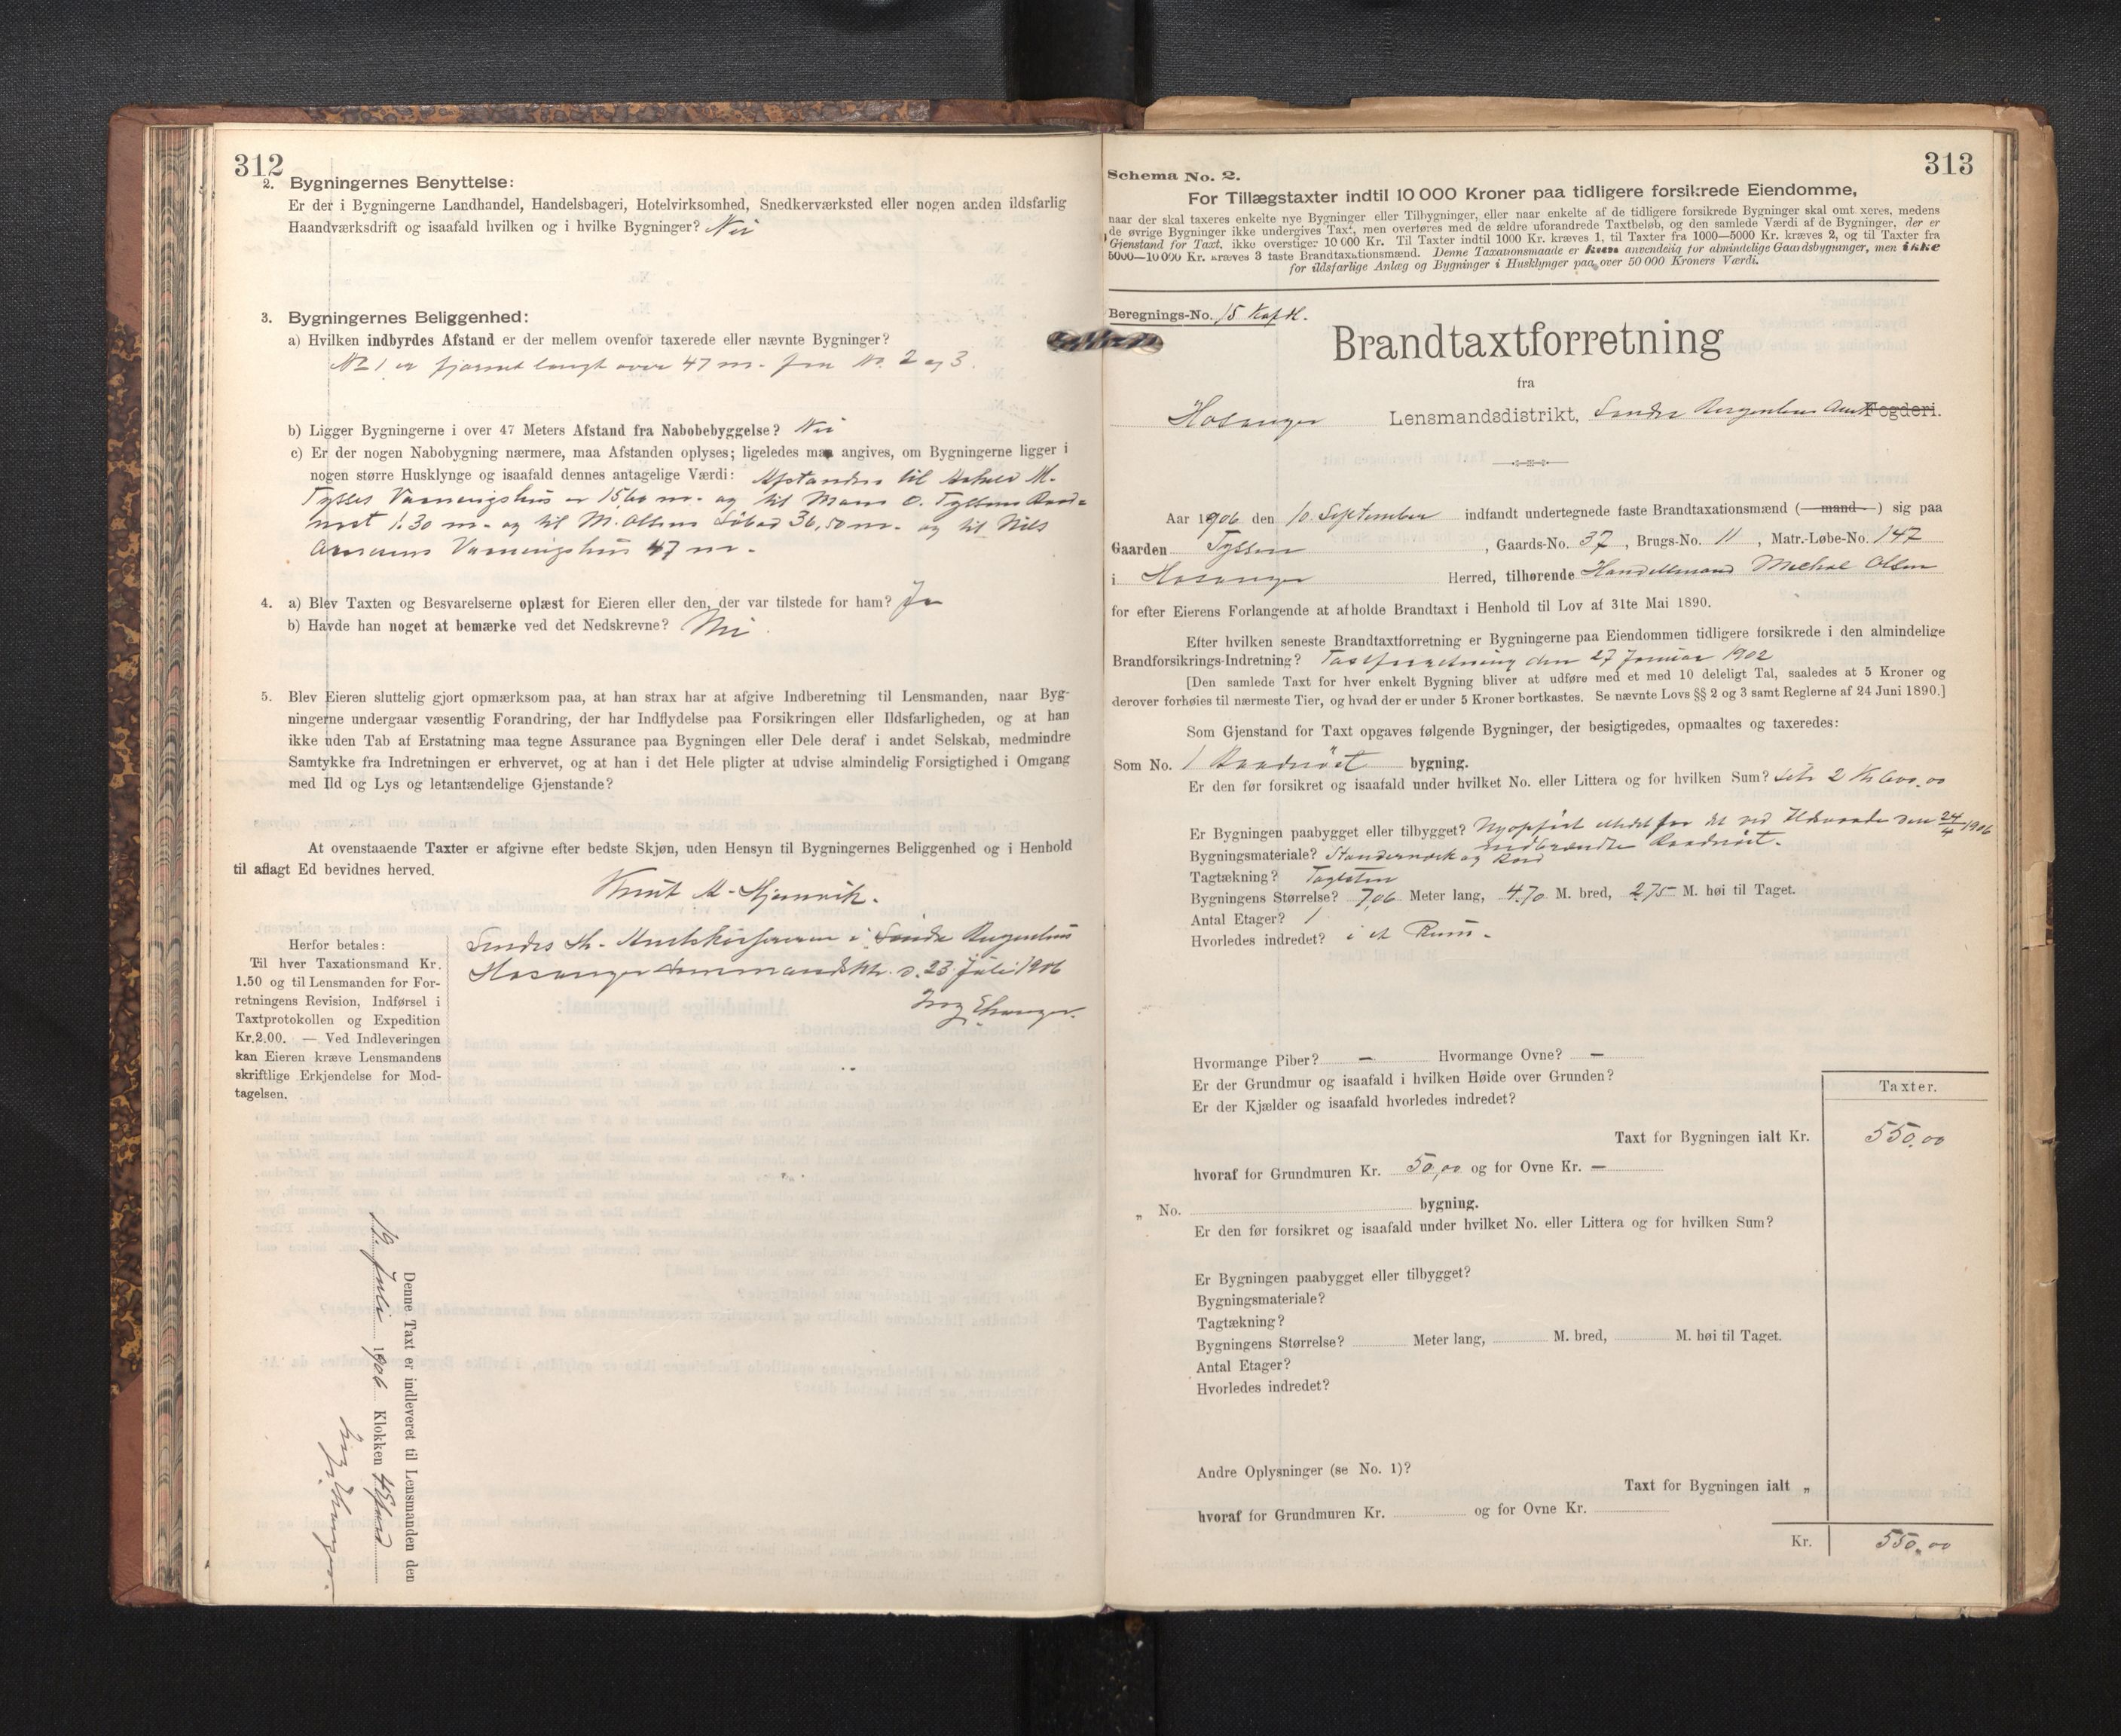 312
2. Bygningernes Benyttelse:
Er der i Bygningerne Landhandel, Handelsbageri, Hotelvirksomhed, Snedkerværksted eller nogen anden ildsfarlig
Haandværksdrift og isaafald hvilken og i hvilke Bygninger? Nei
3. Bygningernes Beliggenhed:
a) Hvilken indbyrdes Afstand er der mellem ovenfor taxerede eller nævnte Bygninger?
No 1 er fjernet langt over 47 m. fra No. 2 og 3.
b) Ligger Bygningerne i over 47 Meters Afstand fra Nabobebyggelse? Nei
c) Er der nogen Nabobygning nærmere, maa Afstanden oplyses; ligeledes maa angives, om Bygningerne ligger i
nogen større Husklynge og isaafald dennes antagelige Værdi: Afstanden til M.
Vaaningshus er 15,60 m. og til Mons O. Tyssens Baad-
nøst 1.30 m. og til M. Olsens Søbod 36,50 m. og til Nils
Vaaningshus 47 m.
4. a) Blev Taxten og Besvarelserne oplæst for Eieren eller den, der var tilstede for ham? Ja
b) Havde han noget at bemærke ved det Nedskrevne? Nei
5. Blev Eieren sluttelig gjort opmærksom paa, at han strax har at afgive Indberetning til Lensmanden, naar Byg-
ningerne undergaar væsentlig Forandring, der har Indflydelse paa Forsikringen eller Ildsfarligheden, og at han
ikke uden Tab af Erstatning maa tegne Assurance paa Bygningen eller Dele deraf i andet Selskab, medmindre
Samtykke fra Indretningen er erhvervet, og at han i det Hele pligter at udvise almindelig Forsigtighed i Omgang
med Ild og Lys og letantændelige Gjenstande?
At ovenstaaende Taxter er afgivne efter bedste Skjøn, uden Hensyn til Bygningernes Beliggenhed og i Henhold
til aflagt Ed bevidnes herved.
Knut M.
Herfor betales:
Til hver Taxationsmand Kr.
1.50 og til Lensmanden for For-
retningens Revision, Indførsel i
Taxtprotokollen og Expedition
Kr.2.00. — Ved Indleveringen
kan Eieren kræve Lensmandens
skriftlige Erkjendelse for Mod-
tagelsen.
Sendes Hr. Amtskassereren i Søndre Bergenhus
Hosanger d. 23 Juli 1906
Denne Taxt er indleveret til Lensmanden den
19. Juli 1906 Klokken 4
313
Schema No. 2.
For Tillægstaxter indtil 10 000 Kroner paa tidligere forsikrede Eiendomme,
naar der skal taxeres enkelte nye Bygninger eller Tilbygninger, eller naar enkelte af de tidligere forsikrede Bygninger skal omt xeres, medens
de øvrige Bygninger ikke undergives Taxt, men overføres med de ældre uforandrede Taxtbeløb, og den samlede Værdi af de Bygninger, der er
Gjenstand for Taxt, ikke overstiger 10 000 Kr. Til Taxter indtil 1000 Kr. kræves 1, til Taxter fra 1000—5000 Kr. kræves 2, og til Taxter fra
5000—10 000 Kr. kræves 3 faste Brandtaxationsmænd. Denne Taxationsmaade er kun anvendelig for almindelige Gaardsbygninger, men ikke
for ildsfarlige Anlæg og Bygninger i Husklynger paa over 50 000 Kroners Værdi.
Beregnings-No. 15
Brandtaxtforretning
fra
Hosanger Lensmandsdistrikt, Søndre Bergenhus Amt Fogderi.
Aar 1906 den 10. September indfandt undertegnede faste Brandtaxationsmænd (mand) sig paa
Gaarden Tyssen, Gaards-No. 37, Brugs-No. 11, Matr.-Løbe-No. 147
i Hosanger Herred, tilhørende Handelsmand Mechal Olsen
for efter Eierens Forlangende at afholde Brandtaxt i Henhold til Lov af 31te Mai 1890.
Efter hvilken seneste Brandtaxtforretning er Bygningerne paa Eiendommen tidligere forsikrede i den almindelige
Brandforsikrings-Indretning? Taxtforretning den 27 Januar 1902
[Den samlede Taxt for hver enkelt Bygning bliver at udføre med et med 10 deleligt Tal, saaledes at 5 Kroner og
derover forhøies til nærmeste Tier, og hvad der er under 5 Kroner bortkastes. Se nævnte Lovs §§ 2 og 3 samt Reglerne af 24 Juni 1890.]
Som Gjenstand for Taxt opgaves følgende Bygninger, der besigtigedes, opmaaltes og taxeredes:
Som No. 1 Baadnøst bygning.
Er den før forsikret og isaafald under hvilket No. eller Littera og for hvilken Sum? 2 Kr 600,00
Er Bygningen paabygget eller tilbygget? Nyopført istedetfor det ved Ildsvaade den 24/4 1906
nedbrændte Baadnøst.
Bygningsmateriale? Standerværk og Bord
Tagtækning? Taglsten
Bygningens Størrelse? 7,06 Meter lang, 4.70 M. bred, 2,75 M. høi til Taget.
Antal Etager? 1
Hvorledes indredet? i et Rum.
Hvormange Piber? — Hvormange Ovne? —
Er der Grundmur og isaafald i hvilken Høide over Grunden?
Er der Kjælder og isaafald hvorledes indredet?
Taxter.
Taxt for Bygningen ialt Kr. 550,00
hvoraf for Grundmuren Kr. 50,00 og for Ovne Kr. —
„ No. bygning.
Er den før forsikret og isaafald under hvilket No. eller Littera og for hvilken Sum?
Er Bygningen paabygget eller tilbygget?
Bygningsmateriale?
Tagtækning?
Bygningens Størrelse? Meter lang, M. bred, M. høi til Taget.
Antal Etager?
Hvorledes indredet?
Andre Oplysninger (se No. 1)?
Taxt for Bygningen ialt „
hvoraf for Grundmuren Kr. og for Ovne Kr.
Kr. 550,00